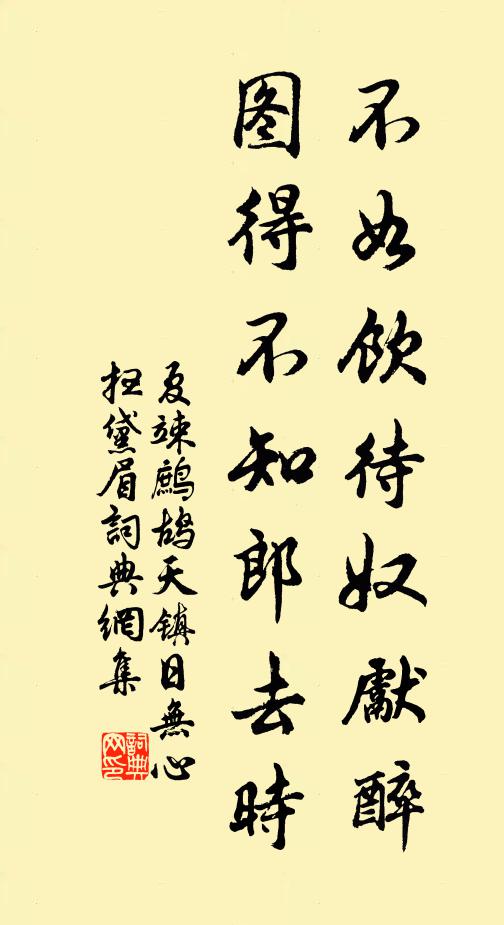 不如飲待奴獻醉
图得不知郎去時
夏竦鷓鴣天鎮日無心
扫黛眉詞典網集
詞典网印